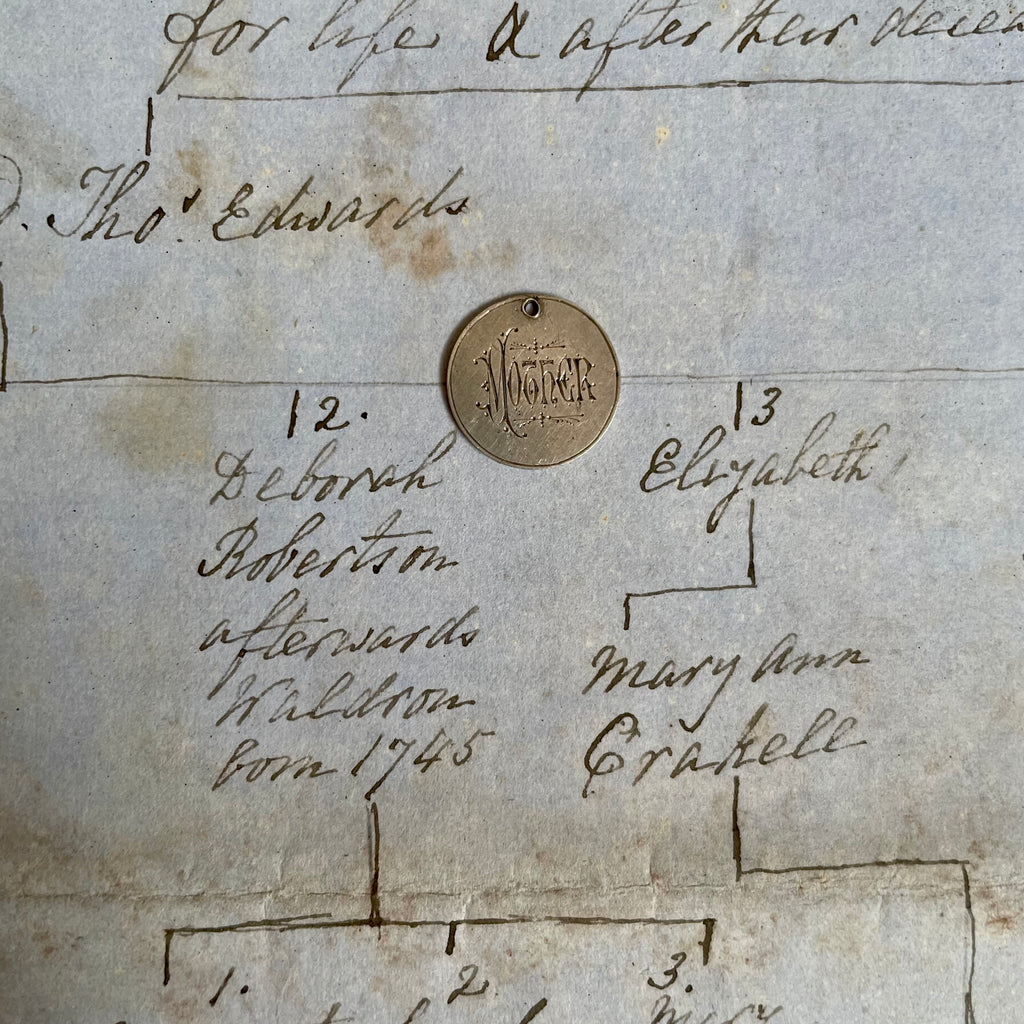 for life & after their
Thos. Edwards
MOTHER
12.
Deborah
Robertson
afterwards
Waldron
born 1745
13
Elizabeth
Mary Ann
Crakell
1.
2
3.
Mary